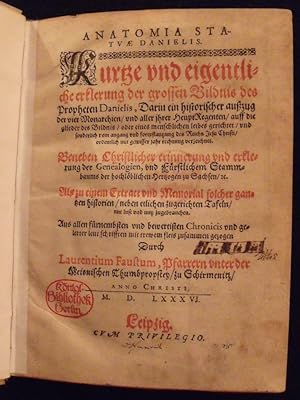 ANATOMIA STA-
TVÆ DANIELIS.
Kurtze vnd eigentli-
che erklerung der grossen Bildnis des
Propheten Danielis, Darin ein historischer außzug
der vier Monarchien/ vnd aller jhrer Heupt Regenten/ auff die
glieder des Bildnis/ oder eines menschlichen leibes gerichtet/ vnd
sonderlich vom angang vnd fortpflantzung des Reichs Jesu Christi/
ordentlich mit gewisser jahr rechnung verzeichnet.
Beneben Christlicher erinnerung vnd erkle-
rung der Genealogien, vnd Fürstlichem Stamm-
baume der hochlöblichen Hertzogen zu Sachsen/ etc.
Als zu einem Extract vnd Memorial solcher gan-
tzen historien/ neben etlichen zugerichten Tafeln/
mit lust vnd nutz zugebrauchen.
Aus allen fürnembsten vnd bewertisten Chronicis vnd ge-
lerter leut schrifften mit trewem fleis zusammen gezogen
Durch
Laurentium Faustum, Pfarrern vnter der
Meisnischen Thumbprobstey/ zu Schirmenitz/
ANNO CHRISTI,
M. D. LXXXVI.
Leipzig.
CVM PRIVILEGIO.
Königl.
Bibliothek
Berlin